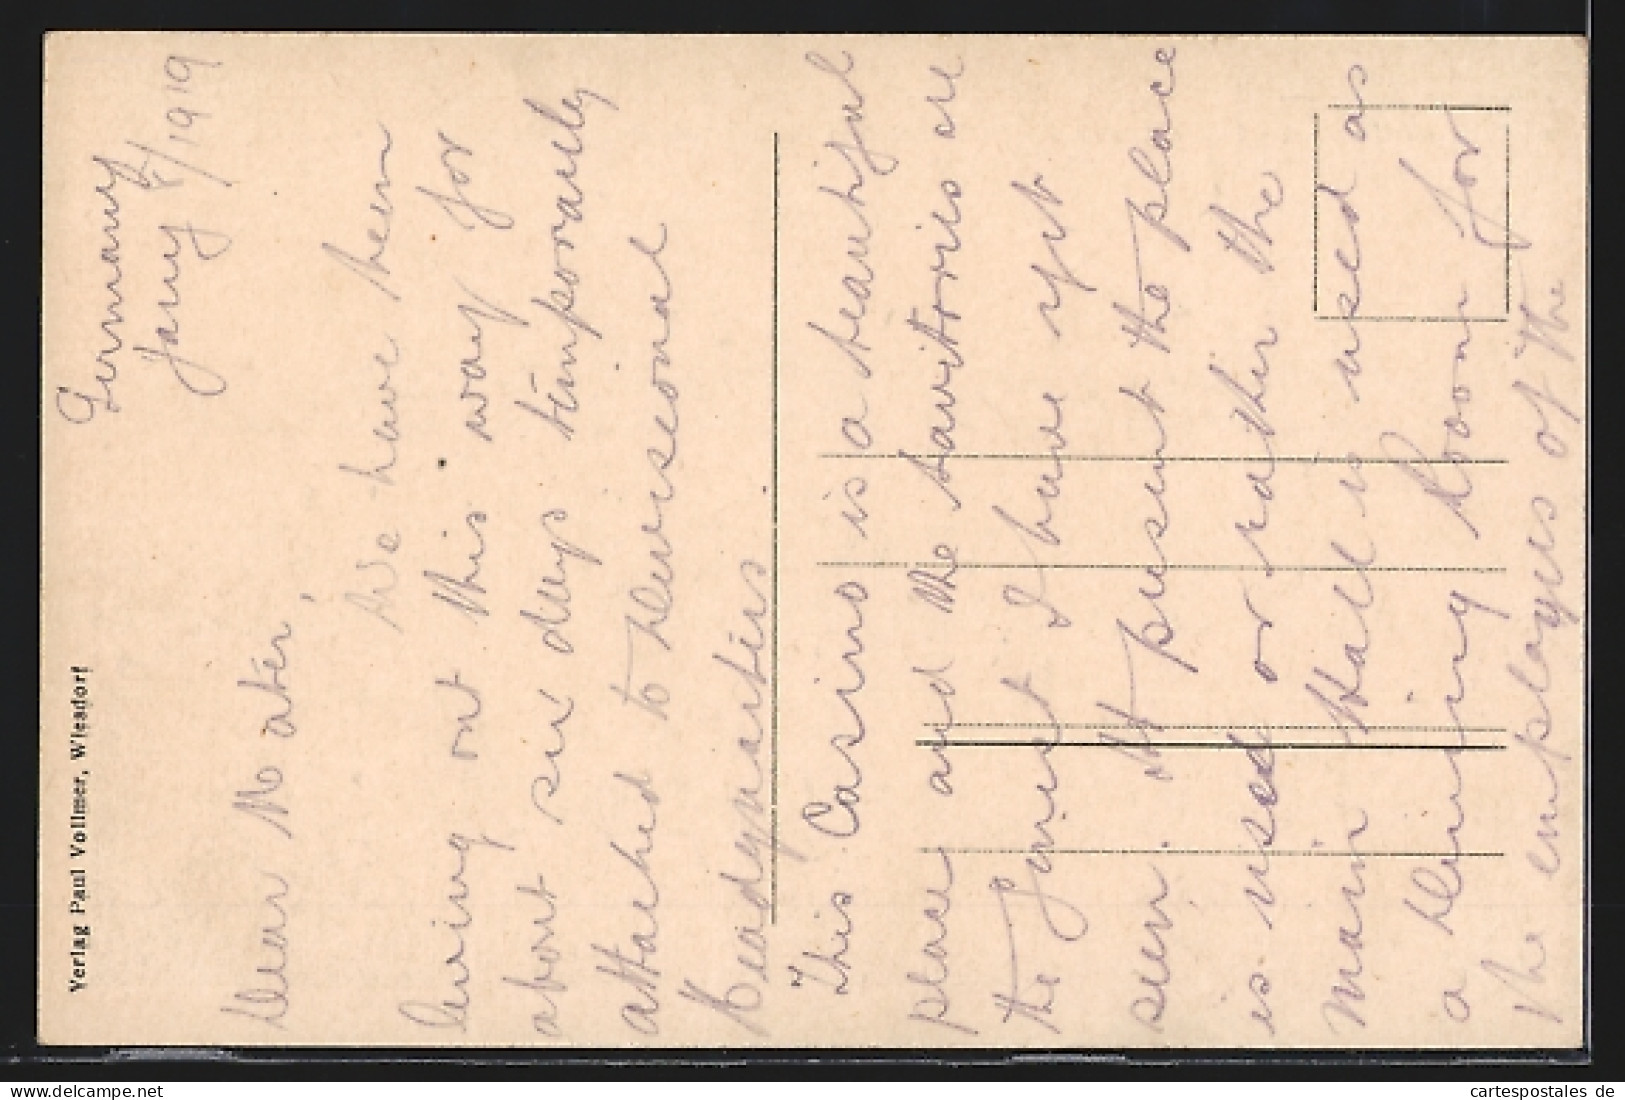 Germany
Jany 8/1919
Dear Mater,
We have been
living out this way for
about six days temporarily
attached to Divisional
Headquarters.
This Casino is a beautiful
place and the lavitories are
the finest I have yet
seen. At present the place
is used or rather the
main Hall is used as
a Dining Room for
the employees of the
Verlag Paul Vollmer, Wiesdorf
https://www.ebay.com/str/thebestpostcards
cartespostales de